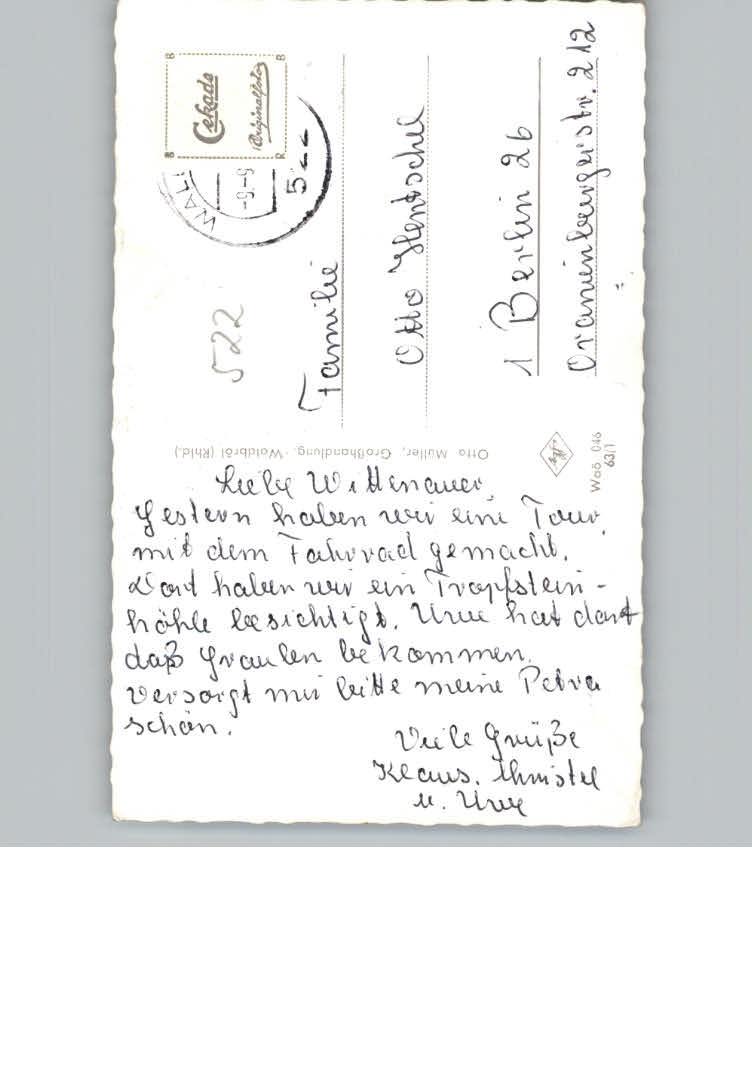 Liebe Wittenauer,
Gestern haben wir eine Tour
mit dem Fahrrad gemacht.
Dort haben wir ein Tropfstein-
höhle besichtigt. Uwe hat dort
daß Graulen bekommen.
Versorgt mir bitte meine Petra
schön.
Viele Grüße
Klaus, Christel
u. Uwe
Otto Müller, Großhandlung, Waldbröl (Rhld.)
B B
Cekade
Originalfoto
R
WAL
-5-5
522
522
Familie
Otto Hentschel
1 Berlin 26
Oranienburgerstr. 212
Agfa
Waö 046
63/1